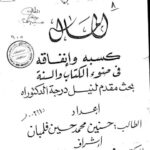 المال
كسبه وإنفاقه
في ضوء الكتاب والسنة
بحث مقدم لنيل درجة الدكتوراه
إعداد
الطالب: حسنين محمد حسين فلمبان
إشراف